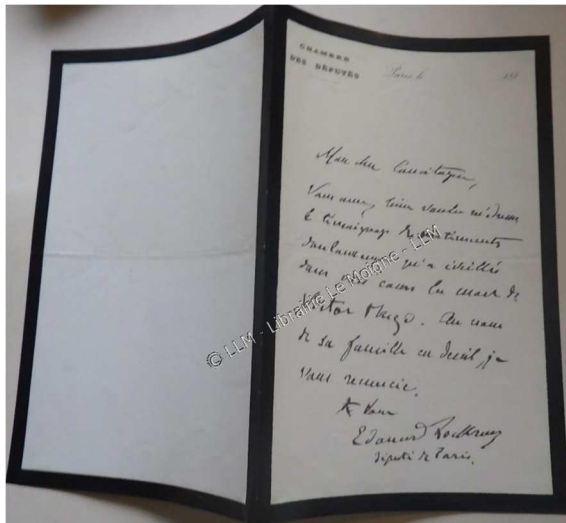 CHAMBRE
DES DÉPUTÉS
Paris le 188
Mon cher Concitoyen,
Vous avez bien voulu m'adresser
le témoignage des sentiments
douloureux qu'a éveillés
dans cœurs la mort de
Victor Hugo. Au nom
de sa famille en deuil, je
vous remercie.
A vous
Edouard Lockroy
député de Paris.
© LLM - Librairie Le Moigne - LLM